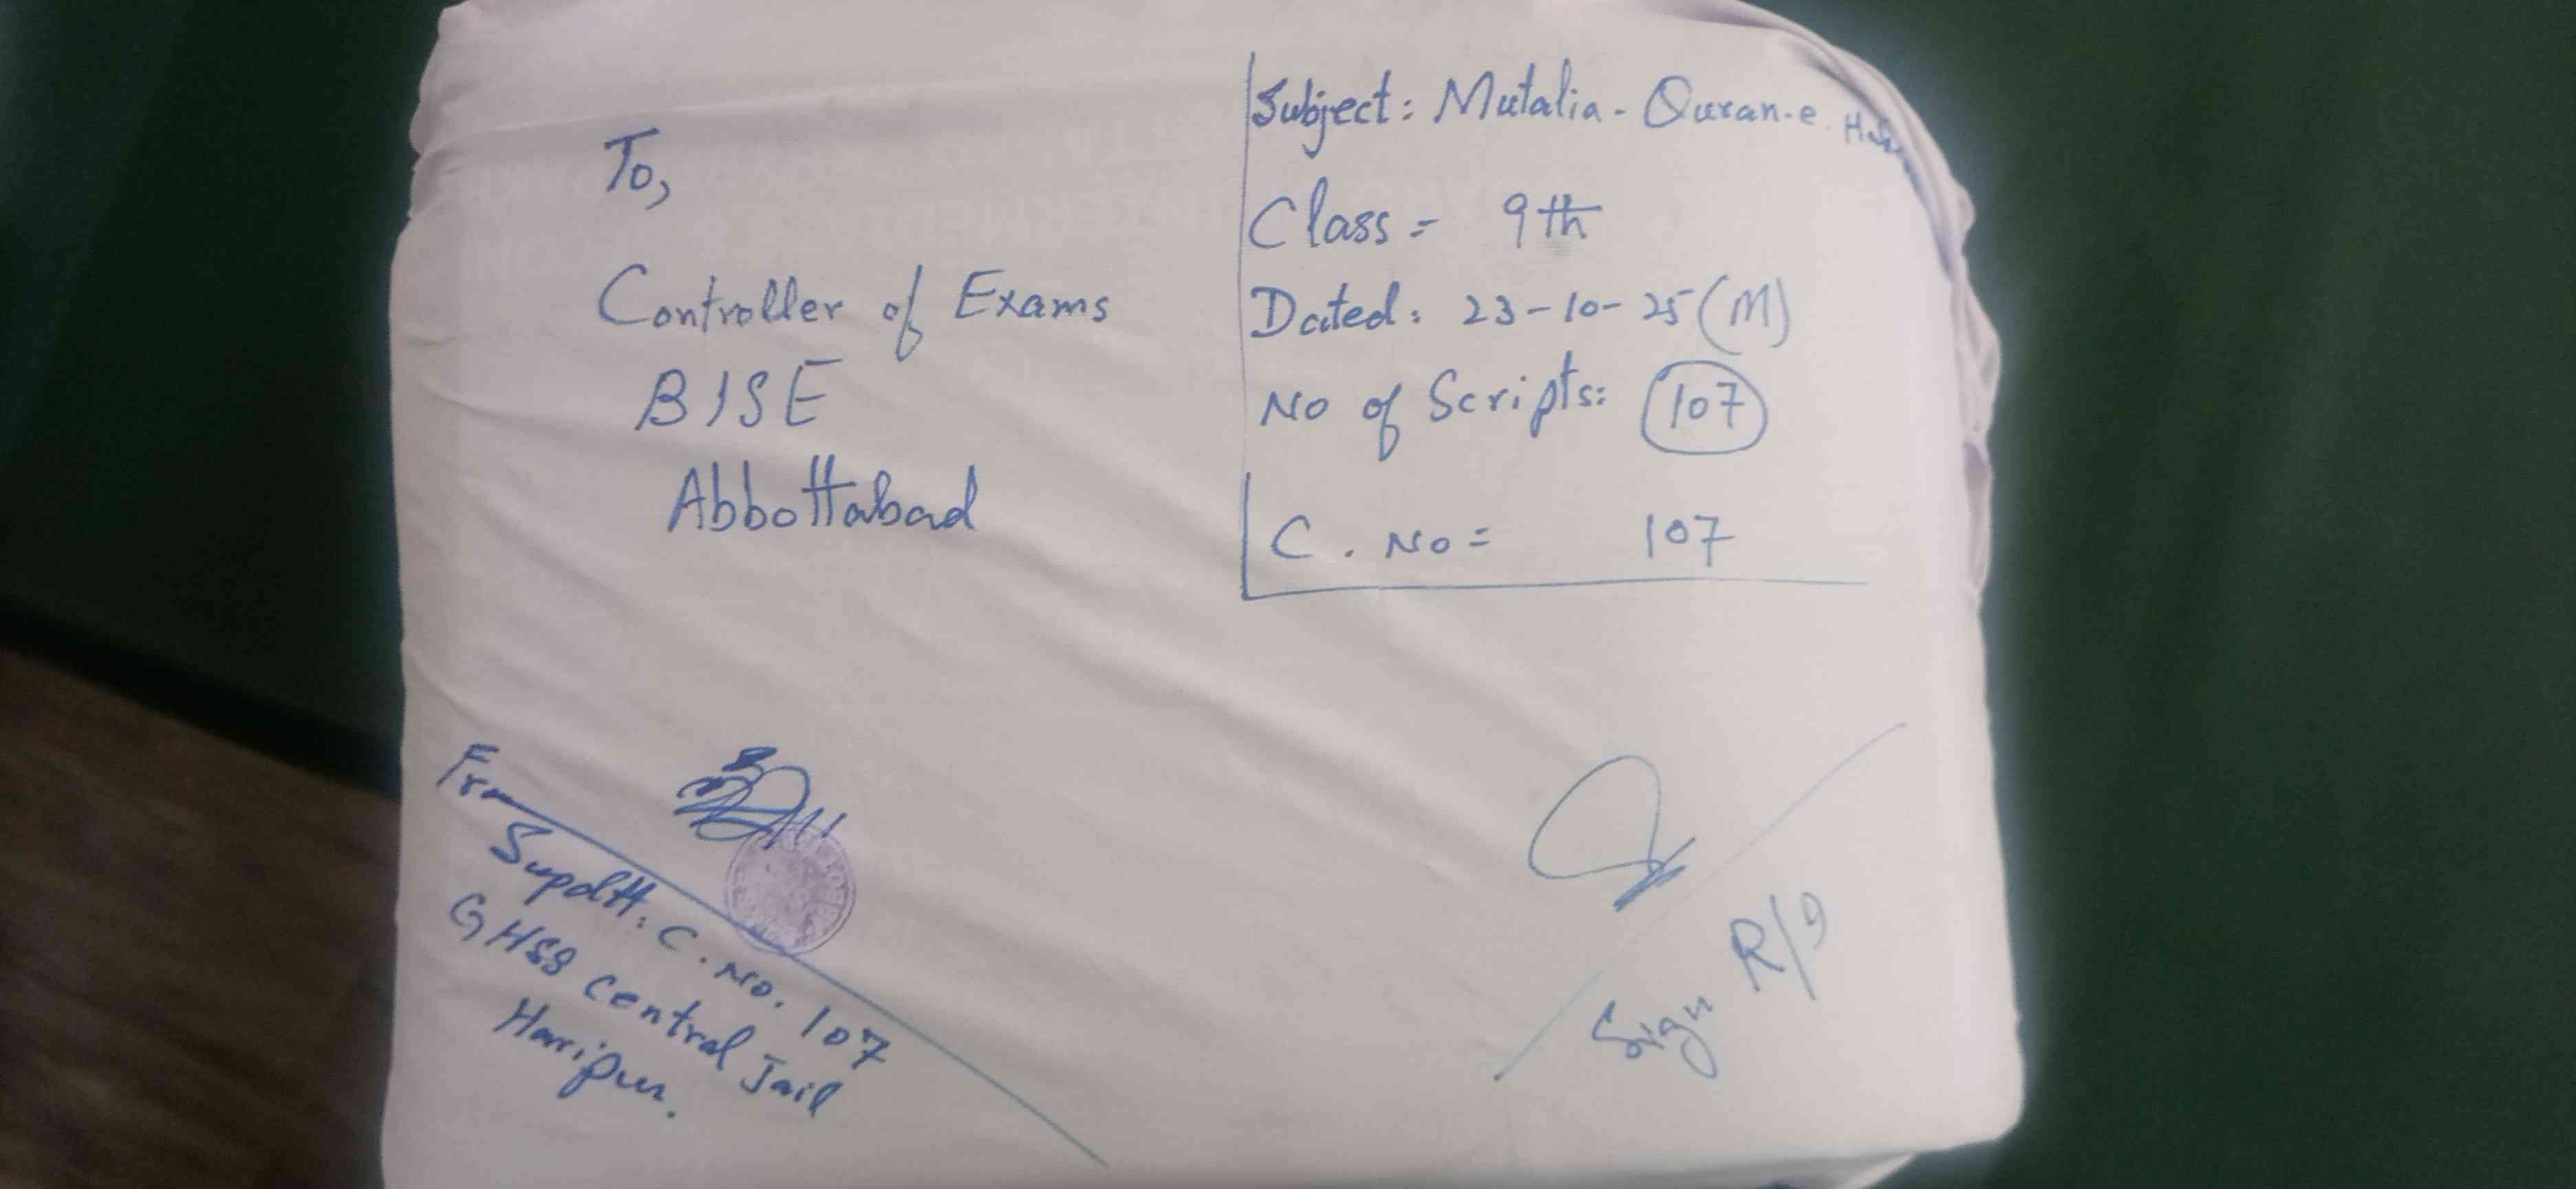 To,
Controller of Exams
BISE
Abbottabad
Subject: Mutalia - Quran-e.
Class = 9th
Dated: 23-10-25 (M)
No of Scripts: 107
C. No = 107
From
Supdtt: C. No. 107
GHSS Central Jail
Haripur.
Sign R/I